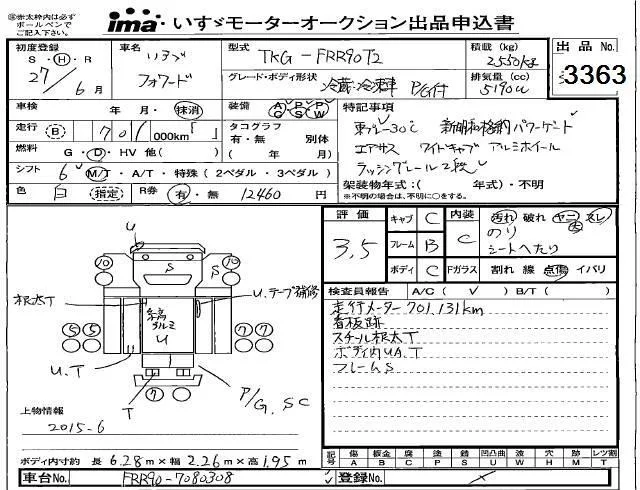 ◎赤太枠内は必ず
ボールペンで
ご記入下さい。
ima いすゞモーターオークション出品申込書
初度登録
S・H・R
27年6月
車名
いすゞ
フォワード
型式
TKG-FRR90T2
グレード・ボディ形状
冷蔵冷凍車 P/G付
積載(kg)
2550kg
排気量(cc)
5190cc
出品No.
3363
車検 年 月・抹消
装備 AC PS PW
走行(B) 701,000km
タコグラフ
有・無 別体
(年 月)
燃料 G・D・HV 他( )
シフト 6 M/T・A/T・特殊(2ペダル・3ペダル)
色 白 指定
R券 有・無 12460円
特記事項
東プレ-30℃ 新明和格納パワーゲート
エアサス ワイドキャブ アルミホイール
ラッシングレール2段
架装物年式:( 年式)・不明
※不明の場合は、不明に○をする。
評価
3.5
キャブ C
フレーム B
ボディ C
内装 C
汚れ 破れ ヤニ スレ
のり
シートへたり
Fガラス 割れ 線 点傷 イバリ
検査員報告 A/C( ✓ ) B/T( )
走行メーター701,131km
看板跡
スチール根太T
ボディ内UA.T
フレームS
U
⑩
S
S
⑩
根太T
縞
アルミ
U
U.テープ補修
⑤⑤
⑦⑦
U.T
T
⑦
P/G.SC
上物情報
2015-6
ボディ内寸約 長6.28m×幅2.26m×高1.95m
記号 傷A 板金B 腐C 塗P 錆S 凹凸曲U 波W 穴H 跡M レツ割T
車台No. FRR90-7080308
登録No.